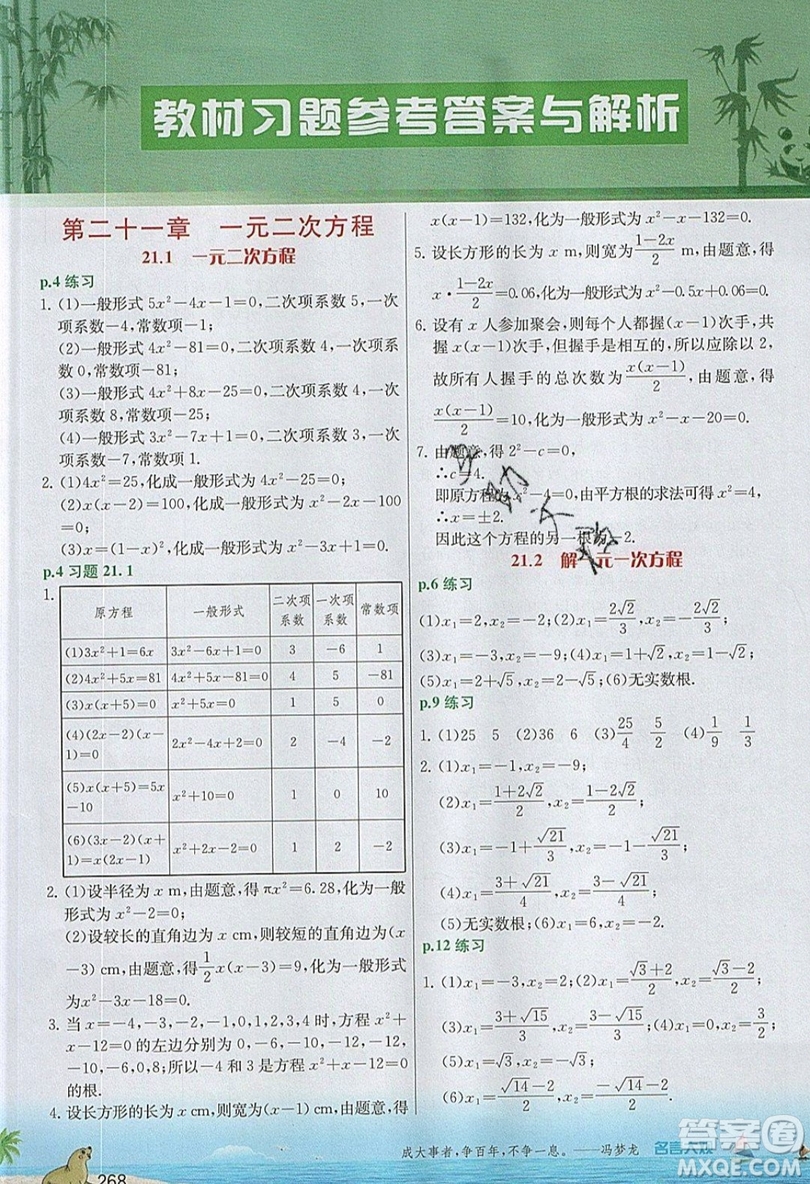 教材习题参考答案与解析
第二十一章 一元二次方程
21.1 一元二次方程
p.4 练习
1. (1)一般形式 5x²-4x-1=0,二次项系数 5,一次
项系数-4,常数项-1;
(2)一般形式 4x²-81=0,二次项系数 4,一次项系
数 0,常数项-81;
(3)一般形式 4x²+8x-25=0,二次项系数 4,一次
项系数 8,常数项-25;
(4)一般形式 3x²-7x+1=0,二次项系数 3,一次项
系数-7,常数项 1.
2. (1)4x²=25,化成一般形式为 4x²-25=0;
(2)x(x-2)=100,化成一般形式为 x²-2x-100
=0;
(3)x=(1-x)²,化成一般形式为 x²-3x+1=0.
p.4 习题 21.1
1.
原方程 一般形式 二次项系数 一次项系数 常数项
(1)3x²+1=6x 3x²-6x+1=0 3 -6 1
(2)4x²+5x=81 4x²+5x-81=0 4 5 -81
(3)x(x+5)=0 x²+5x=0 1 5 0
(4)(2x-2)(x-1)=0 2x²-4x+2=0 2 -4 -2
(5)x(x+5)=5x-10 x²+10=0 1 0 10
(6)(3x-2)(x+1)=x(2x-1) x²+2x-2=0 1 2 -2
2. (1)设半径为 x m,由题意,得 πx²=6.28,化为一般
形式为 πx²-6.28=0;
(2)设较长的直角边为 x cm,则较短的直角边为(x
-3)cm,由题意,得 1/2 x(x-3)=9,化为一般形式为
x²-3x-18=0.
3. 当 x=-4,-3,-2,-1,0,1,2,3,4 时,方程 x²+
x-12=0 的左边分别为 0,-6,-10,-12,-12,
-10,-6,0,8;所以-4 和 3 是方程 x²+x-12=0
的根.
4. 设长方形的长为 x cm,则宽为(x-1)cm,由题意,得
x(x-1)=132,化为一般形式为 x²-x-132=0.
5. 设长方形的长为 x m,则宽为 (1-2x)/2 m,由题意,得
x·(1-2x)/2=0.06,化为一般形式为 x²-0.5x+0.06=0.
6. 设有 x 人参加聚会,则每个人都握(x-1)次手,共
握 x(x-1)次手,但握手是相互的,所以应除以 2,
故所有人握手的总次数为 x(x-1)/2,由题意,得
x(x-1)/2=10,化为一般形式为 x²-x-20=0.
7. 由题意,得 2²-c=0,
∴c=4.
即原方程为 x²-4=0,由平方根的求法可得,
∴x=±2.
因此这个方程的另一根为-2.
21.2 解一元一次方程
p.6 练习
(1)x₁=2,x₂=-2; (2)x₁=2√2/3,x₂=-2√2/3;
(3)x₁=-5,x₂=-7; (4)x₁=1+√2,x₂=1-√2;
(5)x₁=2+√5,x₂=2-√5; (6)无实数根.
p.9 练习
1. (1)25 5 (2)36 6 (3)25/4 5/2 (4)1/9 1/3
2. (1)x₁=-1,x₂=-9;
(2)x₁=(1+2√2)/2,x₂=(1-2√2)/2;
(3)x₁=-1+√21/3,x₂=-1-√21/3;
(4)x₁=(3+√21)/6,x₂=(3-√21)/6;
(5)无实数根; (6)x₁=6,x₂=-2.
p.12 练习
1. (1)x₁=-3,x₂=2; (2)x₁=(√3+2)/2,x₂=(√3-2)/2;
(3)x₁=(3+√15)/3,x₂=(3-√15)/3; (4)x₁=0,x₂=4;
(5)x₁=√3,x₂=-√3;
(6)x₁=(√14-2)/2,x₂=(-√14-2)/2.
268
成大事者,争百年,不争一息。——冯梦龙
答案圈
MXQE.COM